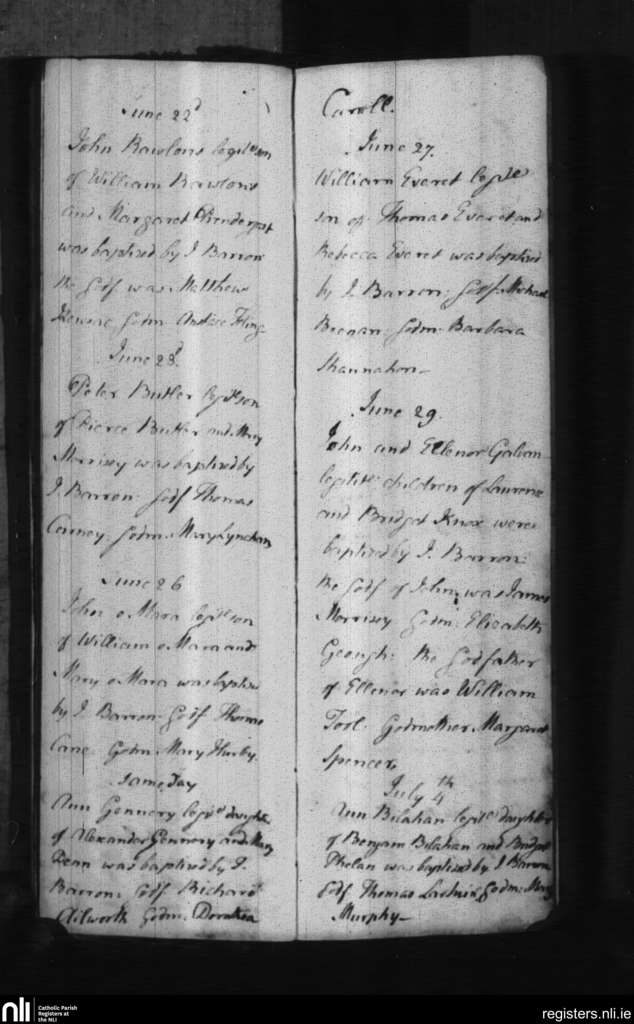 June 22d
John Rawlons legit son
of William Rawlons
and Margaret Prendergast
was baptised by J Barron
the Godf was Matthew
Godm Andice Fling
June 23d
Peter Butler legit son
of Pierce Butler and Mary
Morrisey was baptised by
J. Barron: Godf Thomas
Carney: Godm: Mary Lynchan
June 26
John o Mara legit son
of William o Mara and
Mary o Mara was baptise
by J. Barron Godf Thomas
Cane Godm. Mary Hurby.
Same Day
Ann Gennery legit daughter
of Alexander Gennery and Mary
Kean was baptised by J.
Barron: Godf Richard
Ailworth Godm: Dorothea
Caroll.
June 27.
William Everet legit
son of Thomas Everet and
Rebecca Everet was baptised
by J. Barron: Godf. Michael
Brenan: Godm: Barbara
Shannahon-
June 29.
John and Ellenor Galvan
legiti children of Laurence
and Bridget Knox were
baptised by J. Barron:
the Godf of John was James
Morrisey Godm: Elizabeth
Geough: the Godfather
of Ellenor was William
Tool Godmother Margaret
Spencer
July 4th
Ann Bilahan legit daughter
of Benjam Bilahan and Bridget
Phelan was baptised by J Barron
Godf Thomas Godm: Mary
Murphy-
nli
Catholic Parish
Registers at
the NLI
registers.nli.ie